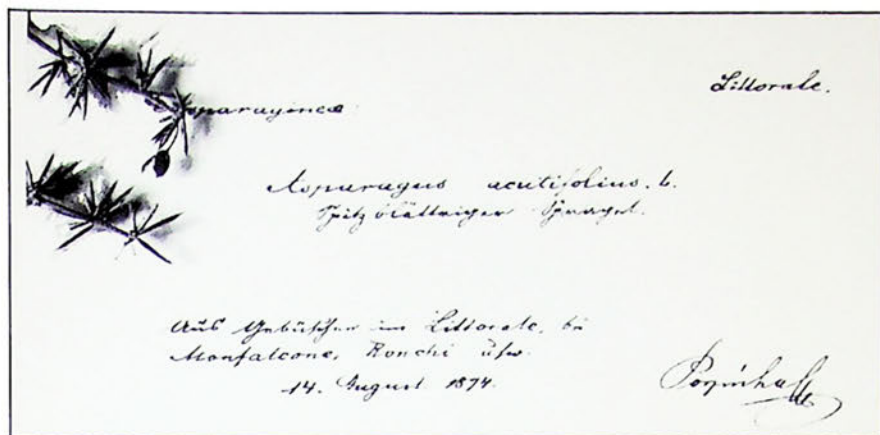 Littorale.
Asparagineae
Asparagus acutifolius. L.
Spitzblättriger Spargel.
Aus Gebüschen im Littorale, bei
Monfalcone, Ronchi usw.
14. August 1874.